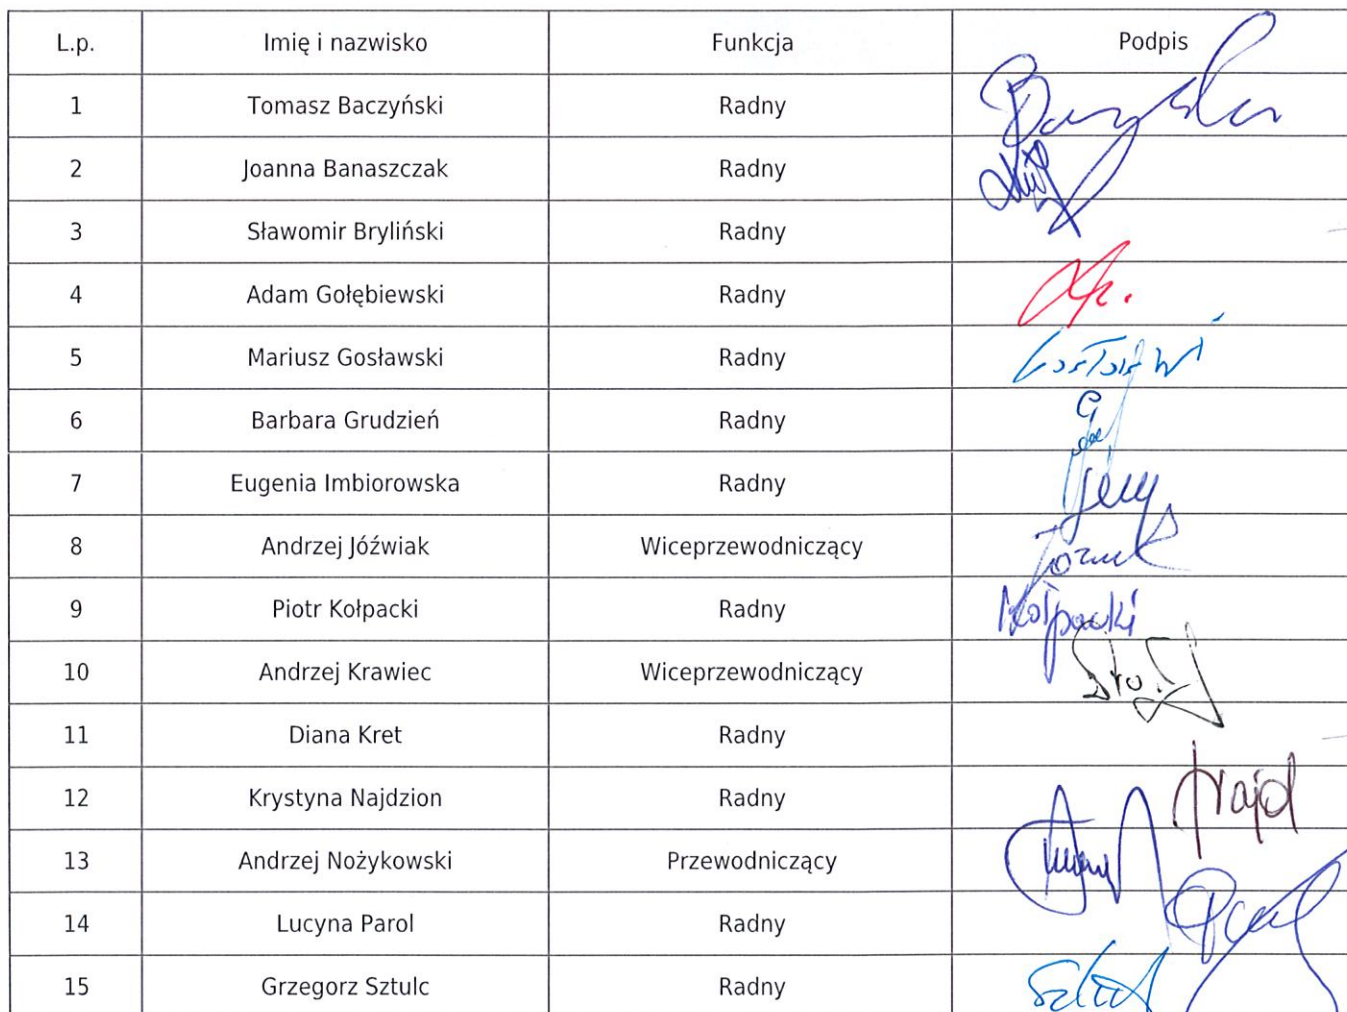 L.p. Imię i nazwisko Funkcja Podpis
1 Tomasz Baczyński Radny
2 Joanna Banaszczak Radny
3 Sławomir Bryliński Radny
4 Adam Gołębiewski Radny
5 Mariusz Gosławski Radny
6 Barbara Grudzień Radny
7 Eugenia Imbiorowska Radny
8 Andrzej Jóźwiak Wiceprzewodniczący
9 Piotr Kołpacki Radny Kołpacki
10 Andrzej Krawiec Wiceprzewodniczący
11 Diana Kret Radny
12 Krystyna Najdzion Radny
13 Andrzej Nożykowski Przewodniczący
14 Lucyna Parol Radny
15 Grzegorz Sztulc Radny